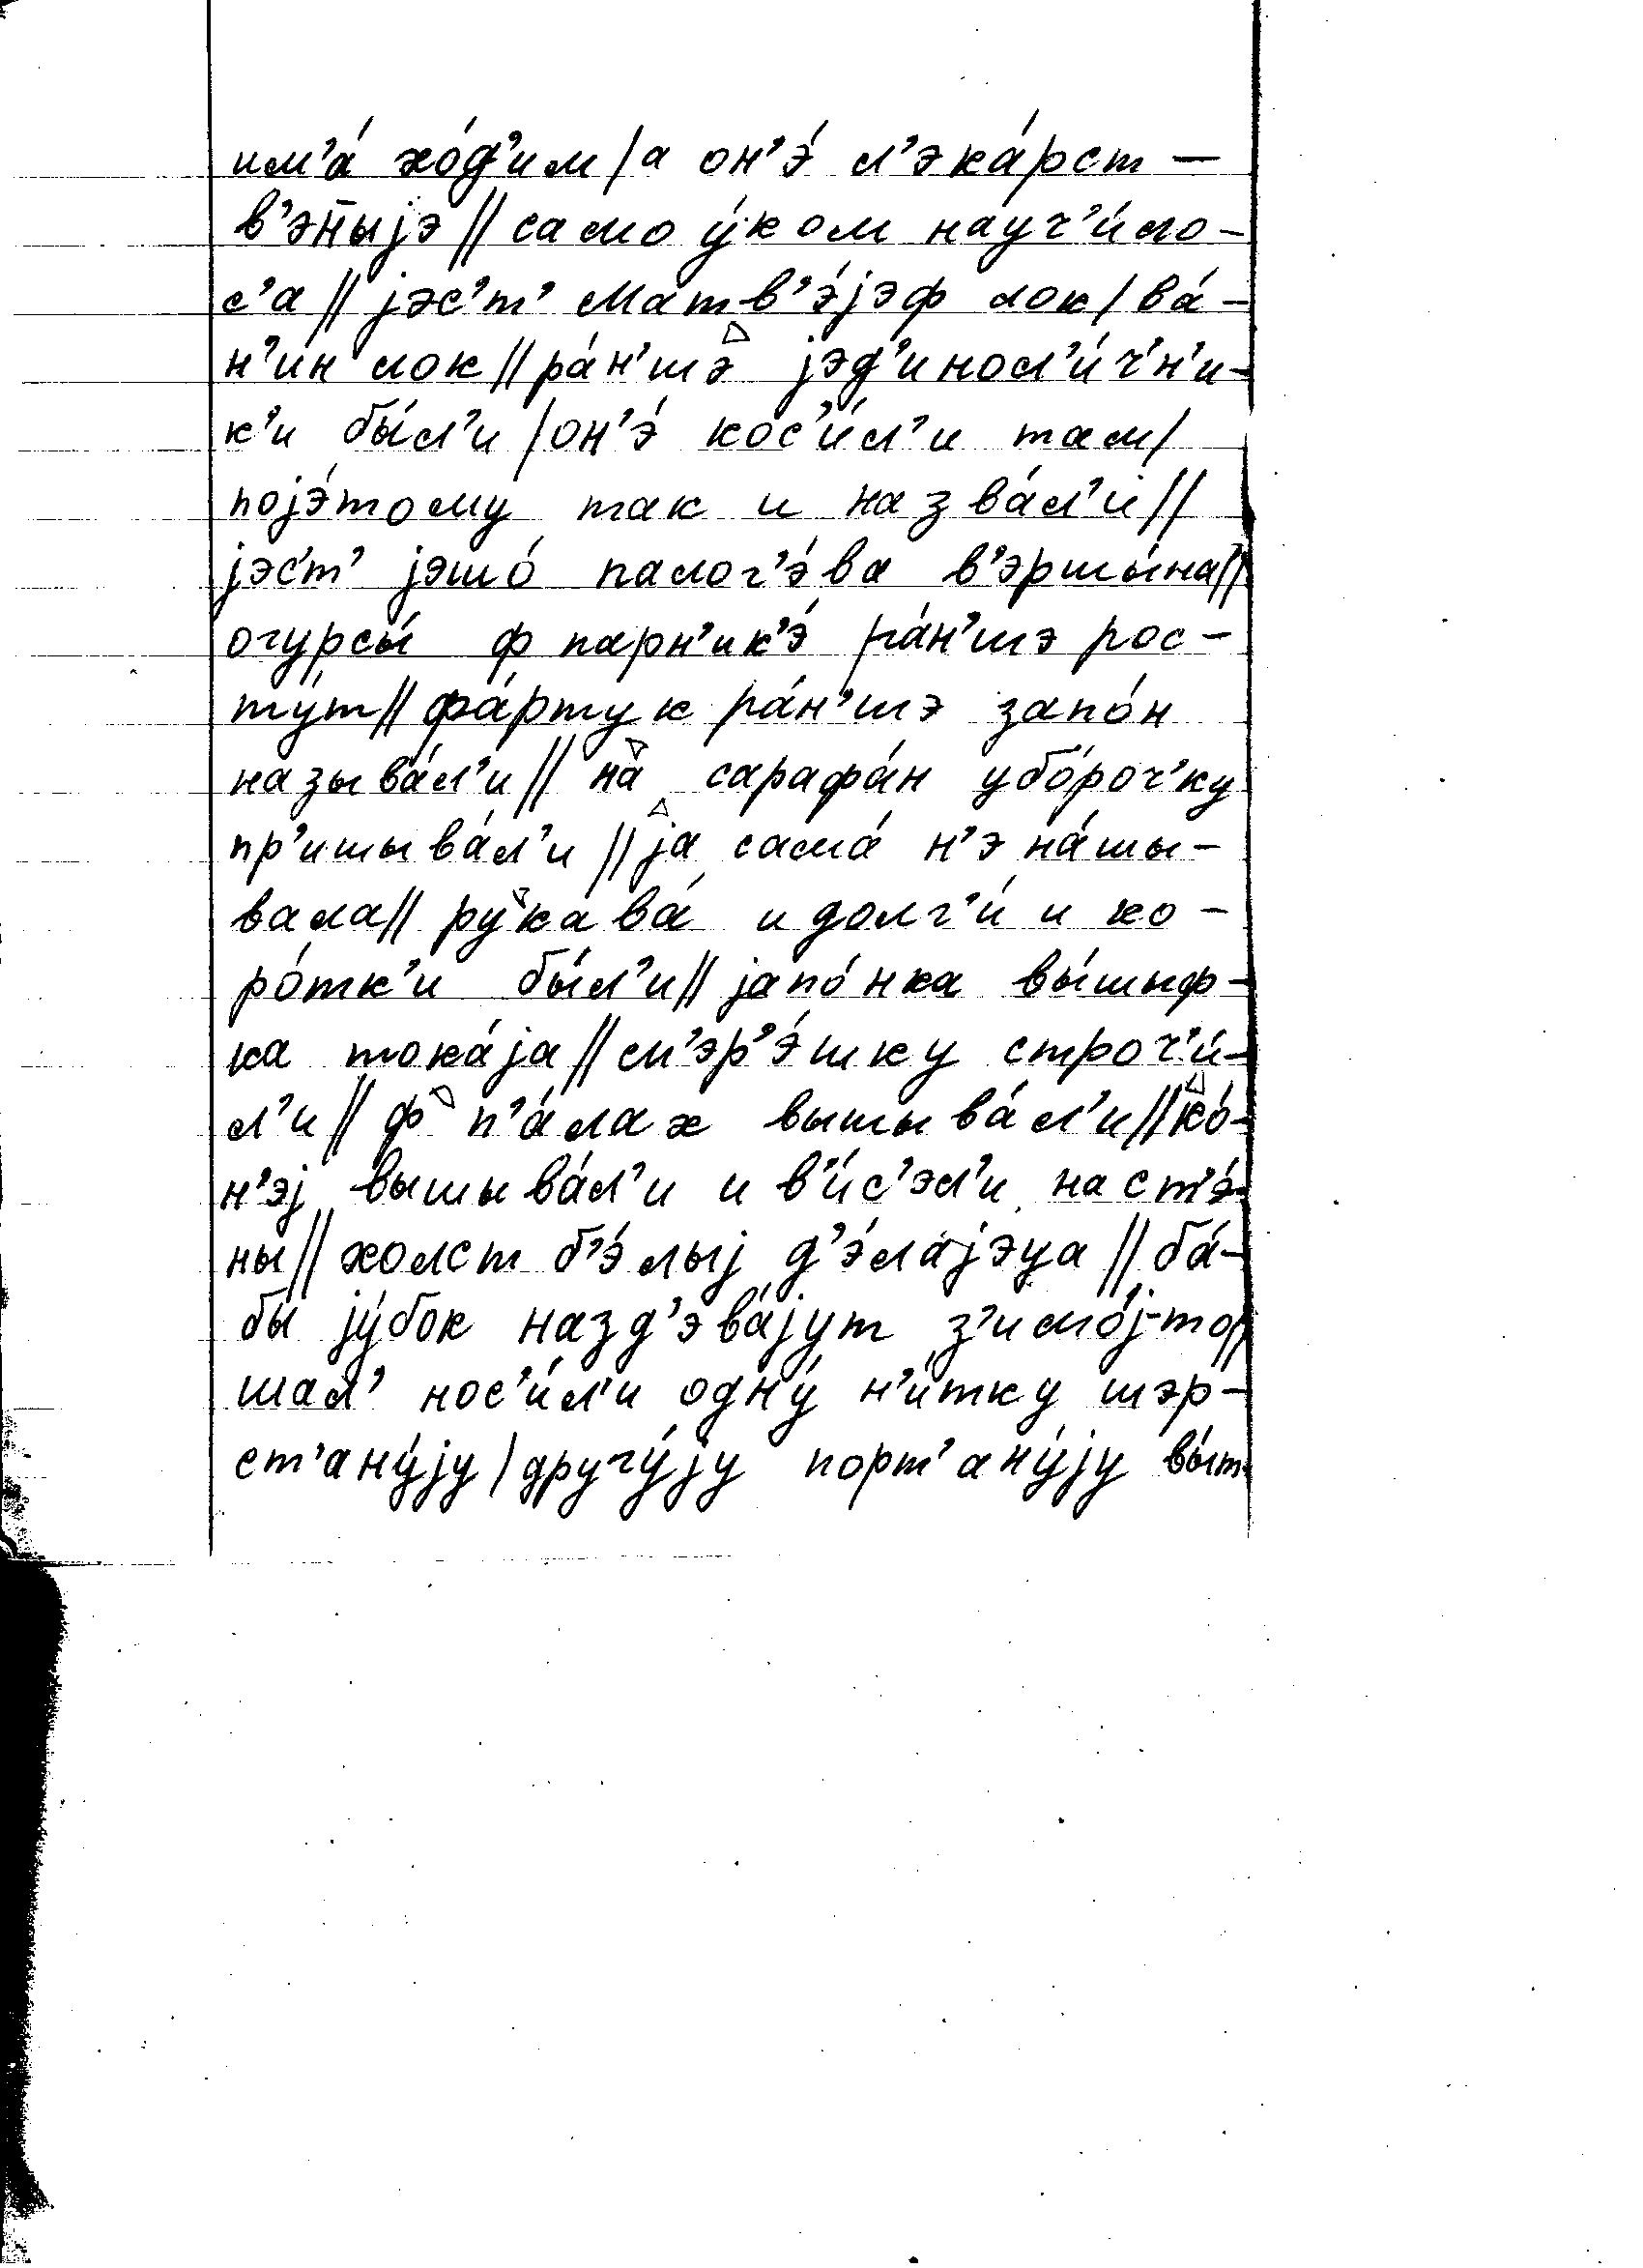 им’а́ хо́д’им / а он’э́ л’эка́рст –
в’эн̄ыјэ // само у́ком науч’и́ло-
с’а // јэс’т’ матв’э́јэф лок / ва́-
н’ин лок // ра́н’шэ јэд’инол’и́ч’н’и-
к’и бы́л’и / он’э́ кос’и́л’и там /
појэ́тому так и назва́л’и //
јэс’т’ јэшо́ палог’э́ва в’эршы́на //
огурсы́ ф парн’ик’э́ ра́н’шэ рос-
ту́т // фа́ртук ра́н’шэ запо́н
называ́л’и // на сарафа́н убо́роч’ку
пр’ишыва́л’и // ја сама́ н’э на́шы-
вала // рукава́ и долг’и́ и ко-
ро́тк’и бы́л’и // јапо́нка вы́шыф-
ка тока́ја // м’эр’э́шку строч’и́-
л’и // ф п’а́лах вышыва́л’и // ко́-
н’эј вышыва́л’и и в’и́с’эл’и на ст’э́-
ны // холст б’э́лыј д’э́лајэца // ба́-
бы јубок назд’эва́јут з’имо́ј-то //
шал’ нос’и́л’и одну́ н’и́тку шэр-
ст’ану́ју / другу́ју порт’ану́ју вы́т